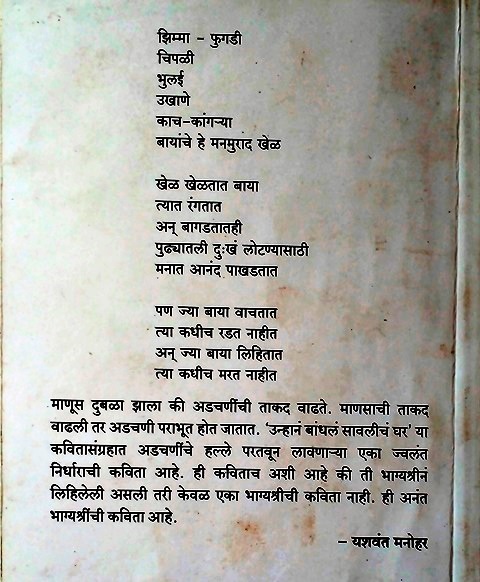 झिम्मा – फुगडी
चिपळी
भुलई
उखाणे
काच-कांगऱ्या
बायांचे हे मनमुराद खेळ
खेळ खेळतात बाया
त्यात रंगतात
अन् बागडतातही
पुढ्यातली दुःखं लोटण्यासाठी
मनात आनंद पाखडतात
पण ज्या बाया वाचतात
त्या कधीच रडत नाहीत
अन् ज्या बाया लिहितात
त्या कधीच मरत नाहीत
माणूस दुबळा झाला की अडचणींची ताकद वाढते. माणसाची ताकद
वाढली तर अडचणी पराभूत होत जातात. ‘उन्हानं बांधलं सावलीचं घर’ या
कवितासंग्रहात अडचणींचे हल्ले परतवून लावणाऱ्या एका ज्वलंत
निर्धाराची कविता आहे. ही कविताच अशी आहे की ती भाग्यश्रीनं
लिहिलेली असली तरी केवळ एका भाग्यश्रीची कविता नाही. ही अनंत
भाग्यश्रींची कविता आहे.
– यशवंत मनोहर